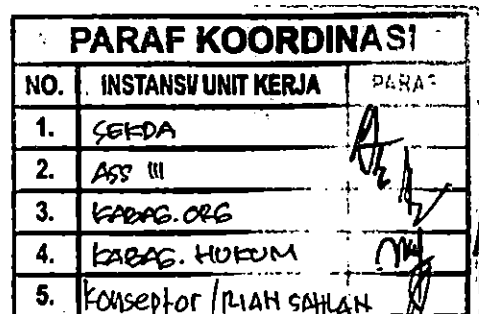 PARAF KOORDINASI
NO. INSTANSI/ UNIT KERJA PARAF
1. SEKDA
2. ASS III
3. KABAG. ORG
4. KABAG. HUKUM
5. Konseptor / RIAH SAHLAN